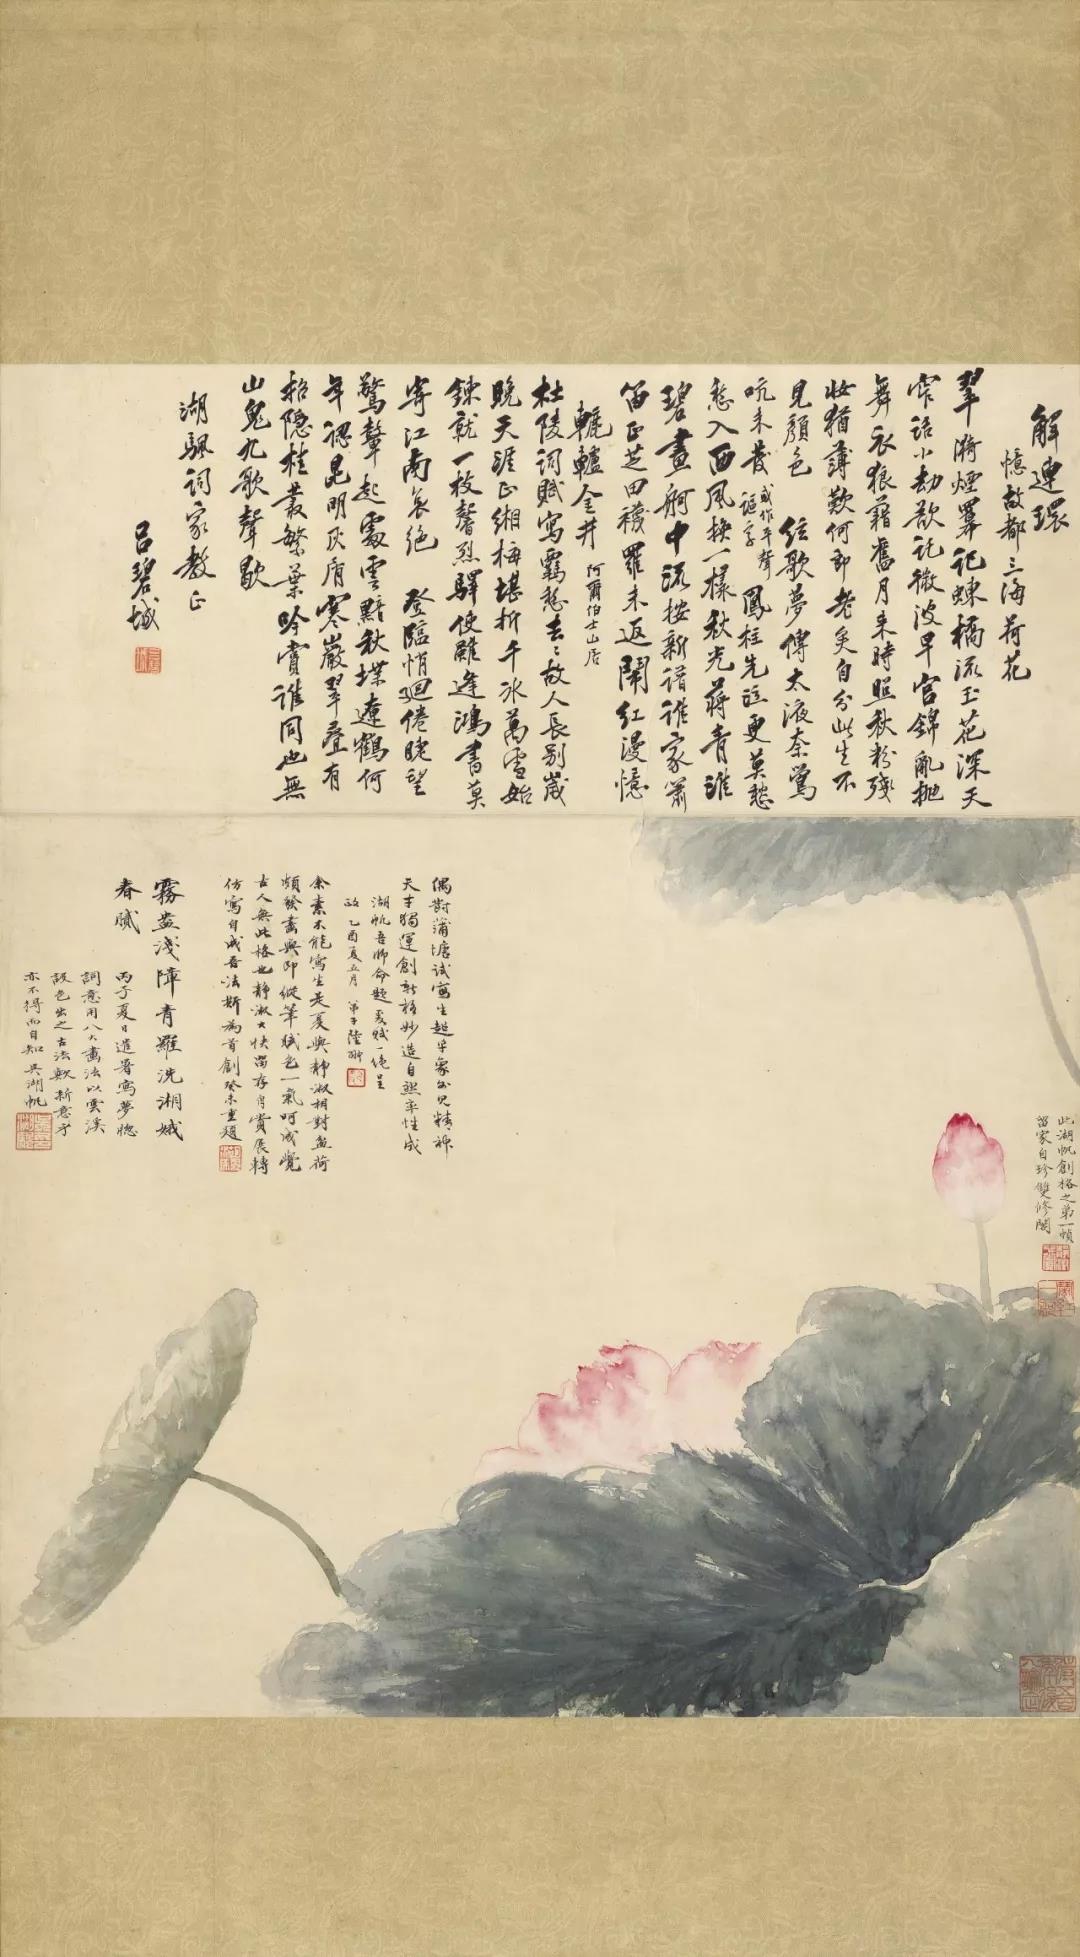 解連環
憶故都三海荷花
翠漪煙羃記蝀橋流玉花深天
窄話小劫欲託微波早宮錦亂拋
舞衣狼藉舊月来時照秋粉殘
妝猶薄歎何郎老矣自分此生不
見顏色　絃歌夢傳太液奈鶯
吭未歇或作平聲謳字鳳柱先迬更莫愁
愁入西風換一樣秋光蔣青誰
碧畫舸中流按新譜誰家簫
笛正芝田襪羅未返鬧紅漫憶
轆轤金井　阿爾伯士山居
杜陵詞賦寫羈愁去々故人長别歲
晚天涯正緗梅堪折千冰萬雪始
鍊就一枝馨烈驛使難逢鴻書莫
寄江南哀絶　登臨悄迴倦眺望
驚鼙起處雲黯秋堞遼鶴何
年認昆明灰膚寒巖翠疊有
招隱桂叢繁葉吟賞誰同也無
山鬼九歌聲歇
湖颿詞家教正
呂碧城
偶對蒲塘試寫生超乎象外見精神
天才獨運創新格妙造自然率性成
湖帆吾師命題爰賦一絶呈
政乙酉夏五月　弟子陸
余素不能寫生是夏與静淑相對盆荷
頻發畫興即縱筆賦色一氣呵成覺
古人無此格也静淑大快留存自賞展轉
仿寫自成吾法斯為首創癸未重題
霧盎淺障青羅洗湘娥
春膩
丙子夏日遣暑寫夢牕
詞意用八大畫法以雲溪
設色出之古法歟新意乎
亦不得而自知吳湖帆
此湖帆創格之第一幀
留家自珍雙修閣